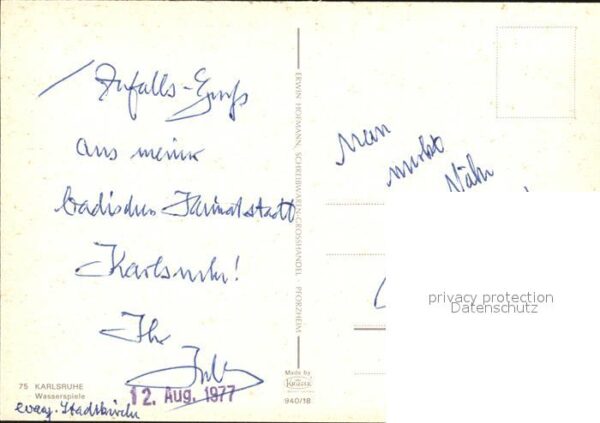 Zufalls-Gruß
aus meiner
badischen Heimatstadt
Karlsruhe!
Ihr
12. Aug. 1977
75 KARLSRUHE
Wasserspiele
evang. Stadtkirche
ERWIN HOFMANN, SCHREIBWAREN-GROSSHANDEL, PFORZHEIM
Made by
KRÜGER
940/18
Man
merkt
Nähe
privacy protection
Datenschutz